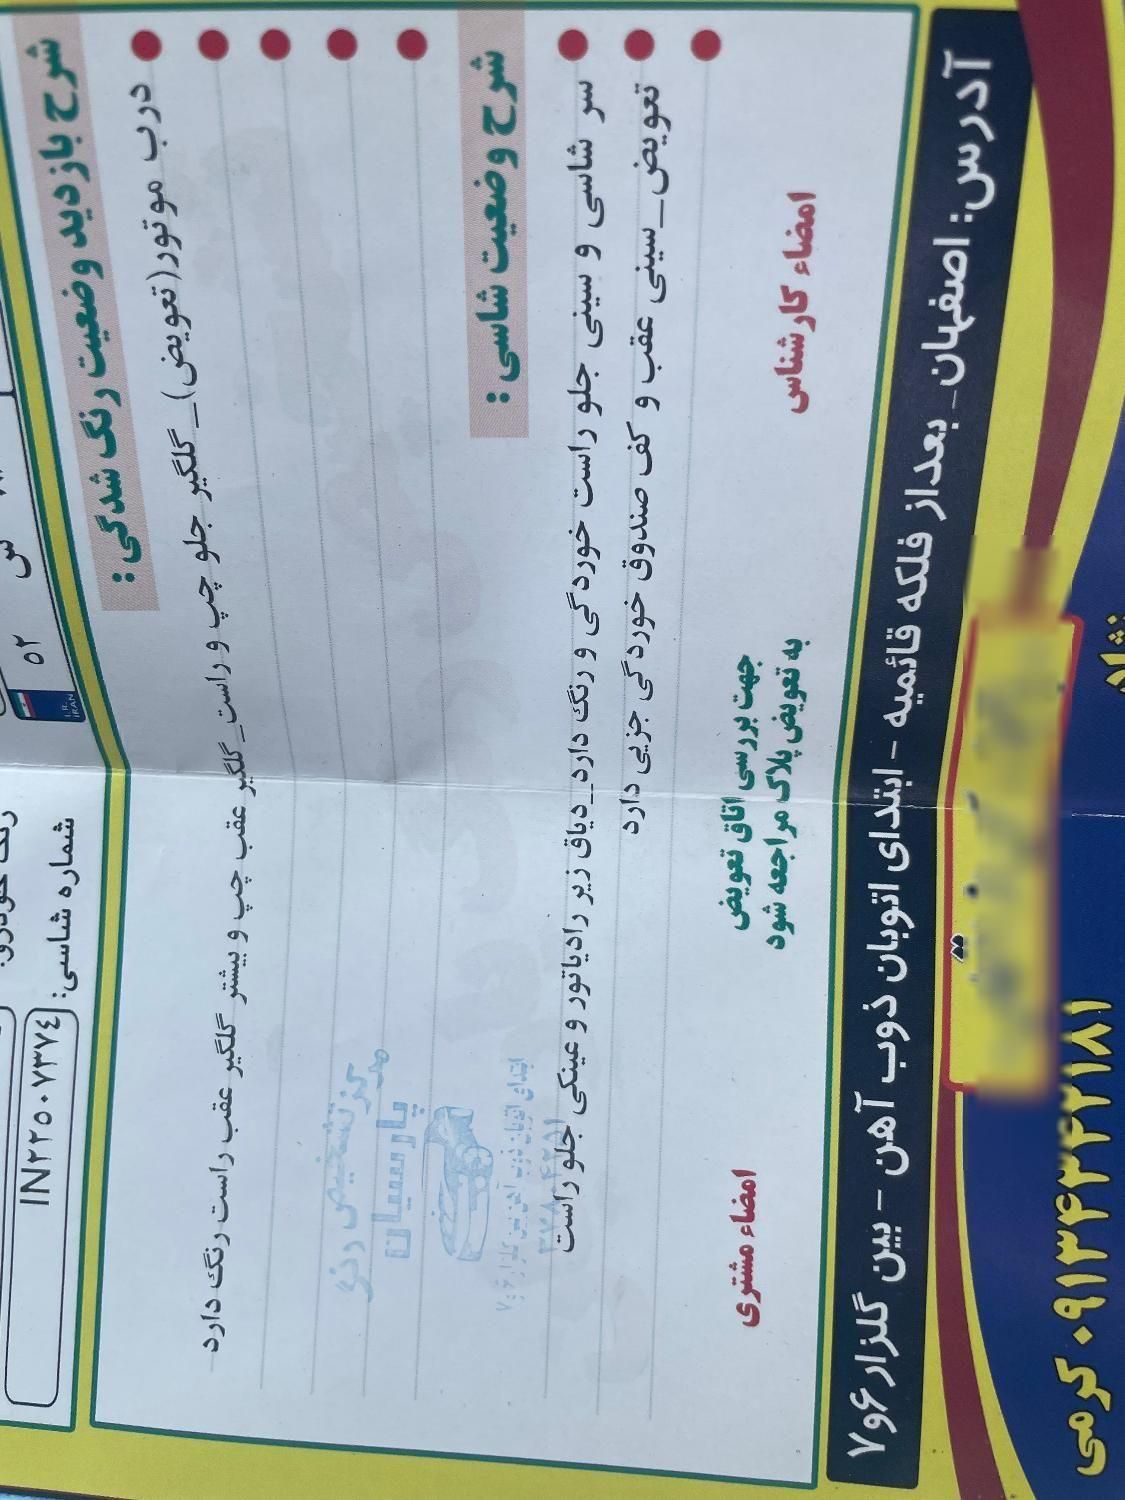 ۵۲
س
I.R.
IRAN
رنگ خودرو:
شماره شاسی:
IN۲۲۵۰۷۳۷۴
شرح بازدید وضعیت رنگ شدگی :
درب موتور(تعویض)_گلگیر جلو چپ و راست_گلگیر عقب چپ و بیشتر گلگیر عقب راست رنگ دارد
مرکز تشخیص رنگ
پارسیان
ابتدای اتوبان ذوب آهن بین گلزار ۶و۷
شرح وضعیت شاسی :
سر شاسی و سینی جلو راست خوردگی و رنگ دارد_دیاق زیر رادیاتور و عینکی جلو راست
تعویض_سینی عقب و کف صندوق خوردگی جزیی دارد
امضاء کارشناس
جهت بررسی اتاق تعویض
به تعویض پلاک مراجعه شود
امضاء مشتری
آدرس: اصفهان_ بعداز فلکه قائمیه - ابتدای اتوبان ذوب آهن - بین گلزار ۶و۷
۰۹۱۳۴۳۴۲۱۸۱ کرمی